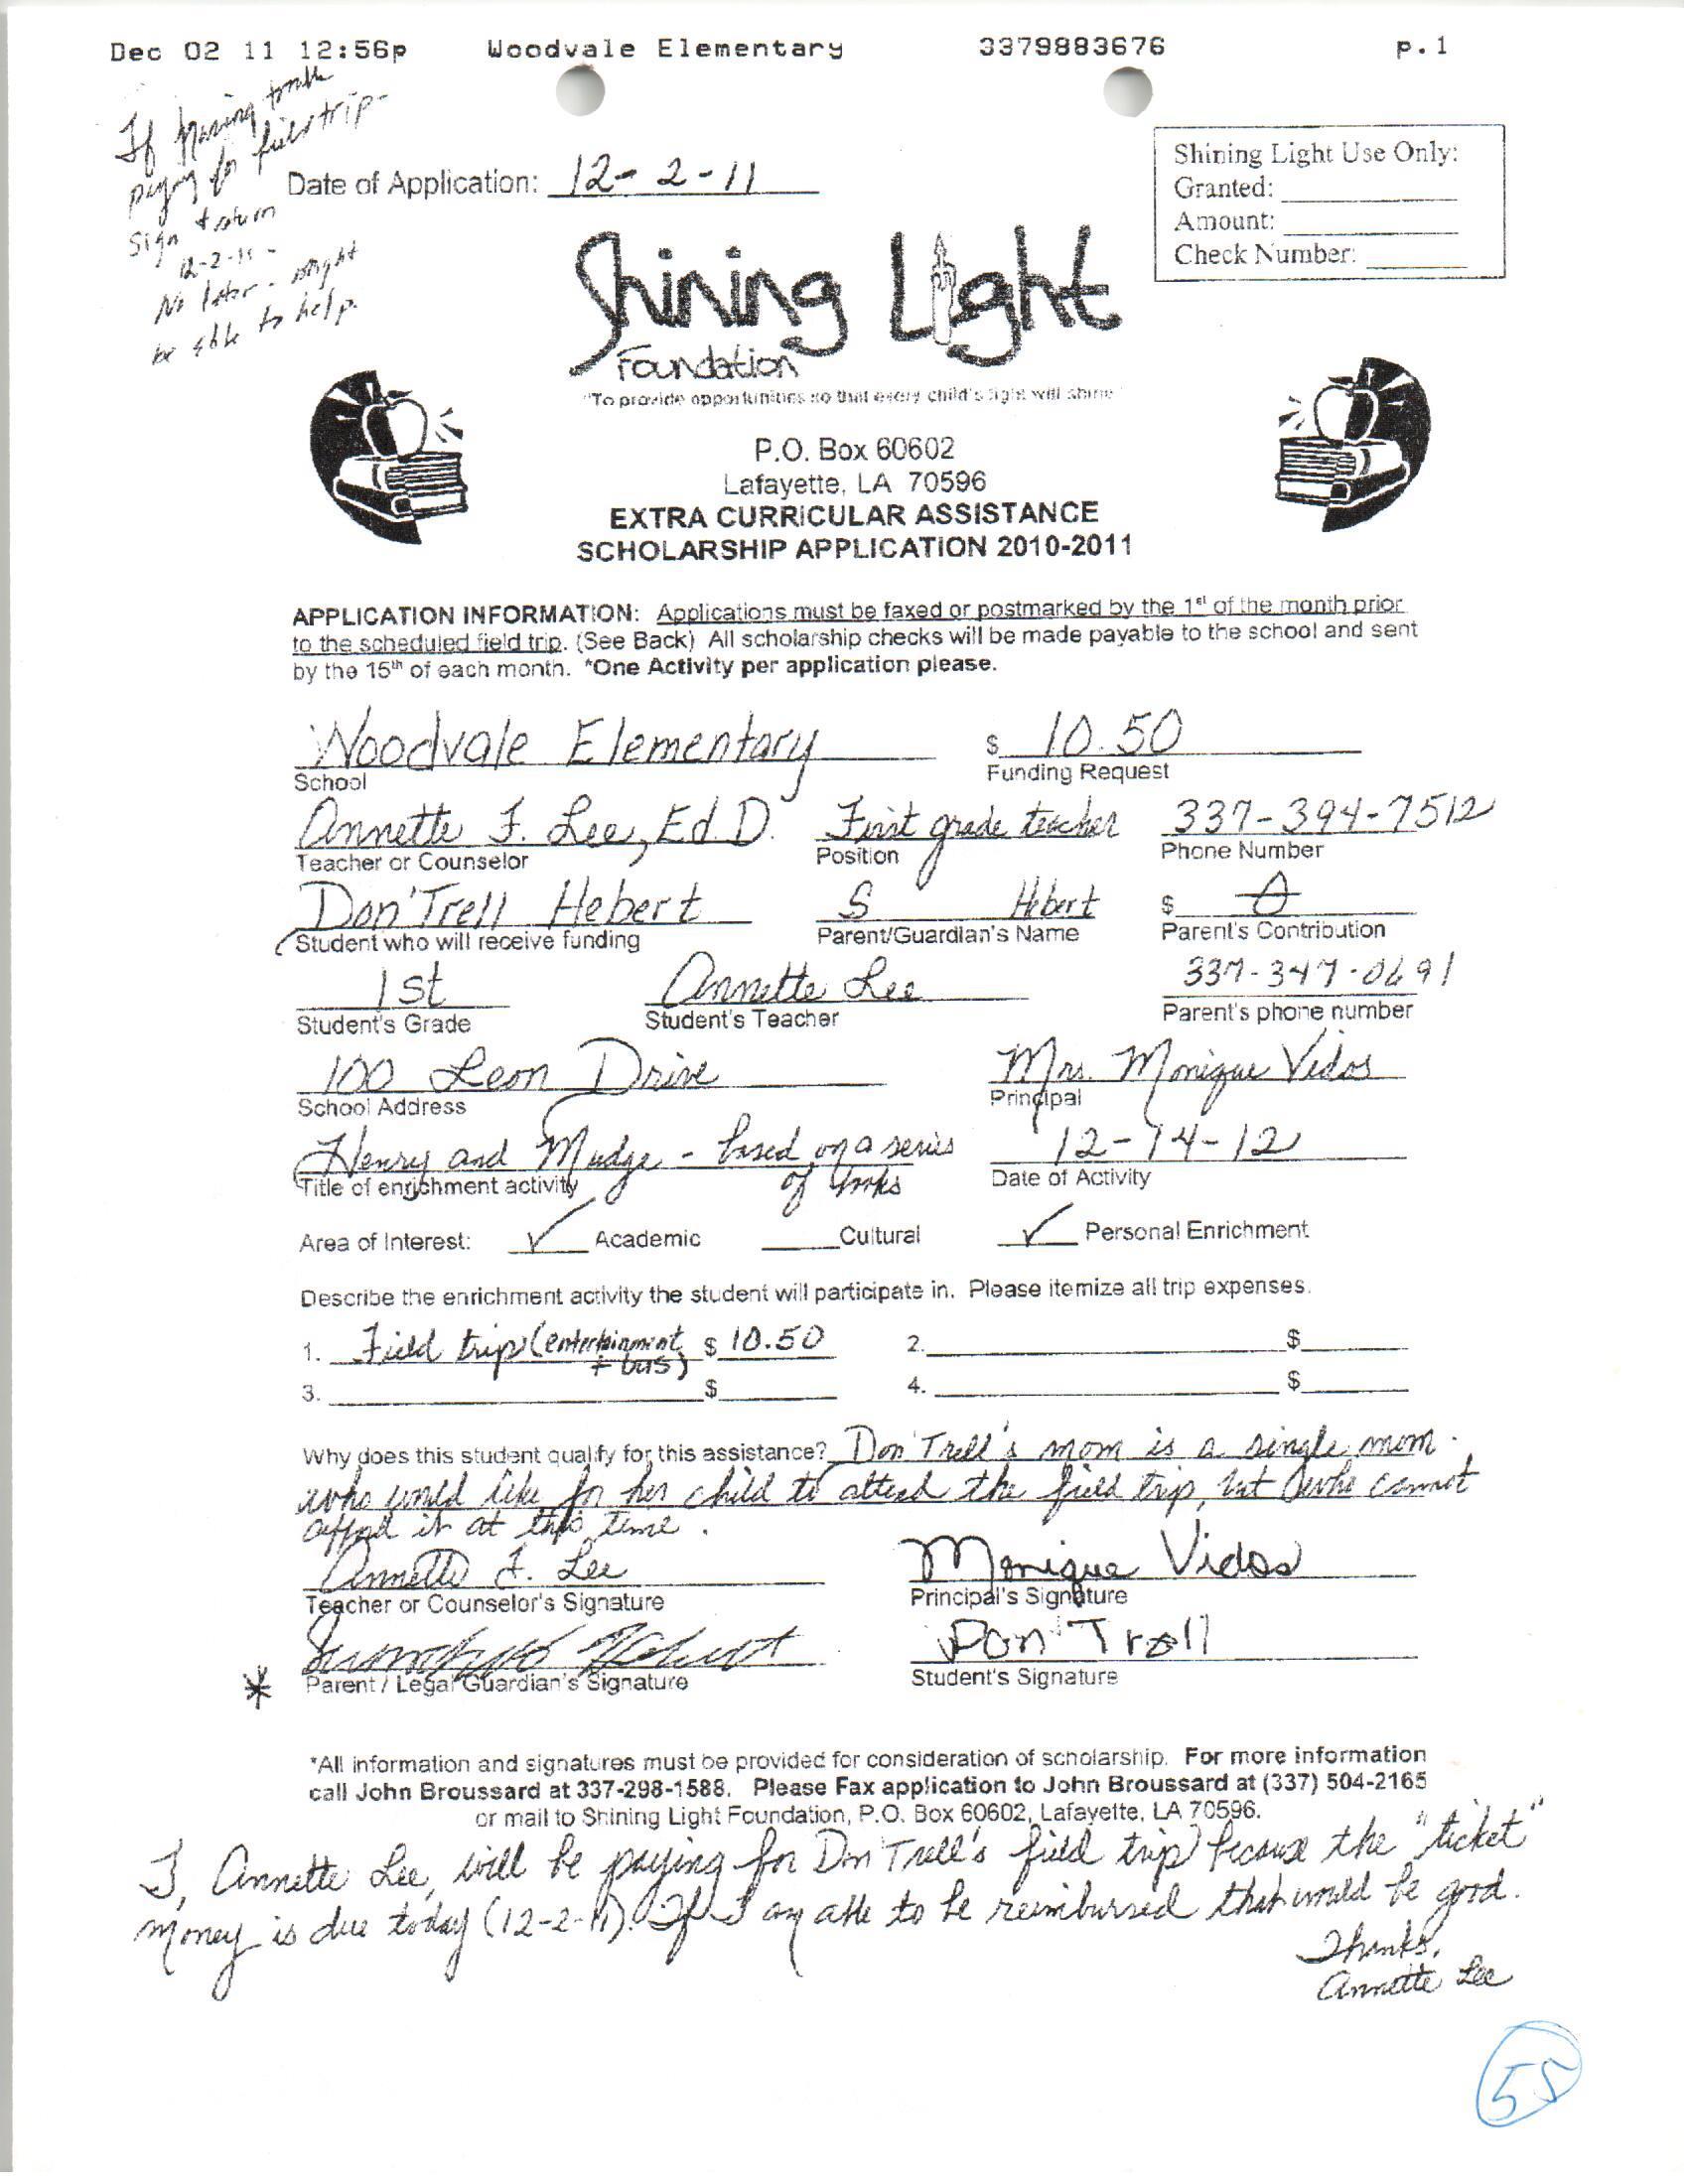 Dec 02 11 12:56p Woodvale Elementary 3379883676 p.1
If having trouble
paying for field trip-
sign & return
12-2-11 -
No later - might
be able to help.
Date of Application: 12-2-11
Shining Light Use Only:
Granted:
Amount:
Check Number:
Shining Light
Foundation
"To provide opportunities so that every child's light will shine"
P.O. Box 60602
Lafayette, LA 70596
EXTRA CURRICULAR ASSISTANCE
SCHOLARSHIP APPLICATION 2010-2011
APPLICATION INFORMATION: Applications must be faxed or postmarked by the 1st of the month prior
to the scheduled field trip. (See Back) All scholarship checks will be made payable to the school and sent
by the 15th of each month. *One Activity per application please.
Woodvale Elementary $ 10.50
School Funding Request
Annette F. Lee, Ed.D. First grade teacher 337-394-7512
Teacher or Counselor Position Phone Number
Don'Trell Hebert S Hebert $ 0
Student who will receive funding Parent/Guardian's Name Parent's Contribution
1st Annette Lee 337-347-0691
Student's Grade Student's Teacher Parent's phone number
100 Leon Drive Mrs. Monique Vidos
School Address Principal
Henry and Mudge - based on a series 12-14-12
of books
Title of enrichment activity Date of Activity
Area of Interest: ✓ Academic Cultural ✓ Personal Enrichment
Describe the enrichment activity the student will participate in. Please itemize all trip expenses.
1. Field trip (entertainment $ 10.50 2. $
+ bus)
3. $ 4. $
Why does this student qualify for this assistance? Don'Trell's mom is a single mom
who would like for her child to attend the field trip, but who cannot
afford it at this time.
Annette F. Lee Monique Vidos
Teacher or Counselor's Signature Principal's Signature
Hebert Don'Trell
* Parent / Legal Guardian's Signature Student's Signature
*All information and signatures must be provided for consideration of scholarship. For more information
call John Broussard at 337-298-1588. Please Fax application to John Broussard at (337) 504-2165
or mail to Shining Light Foundation, P.O. Box 60602, Lafayette, LA 70596.
I, Annette Lee, will be paying for Don'Trell's field trip because the "ticket"
money is due today (12-2-11). If I am able to be reimbursed that would be good.
Thanks,
Annette Lee
55